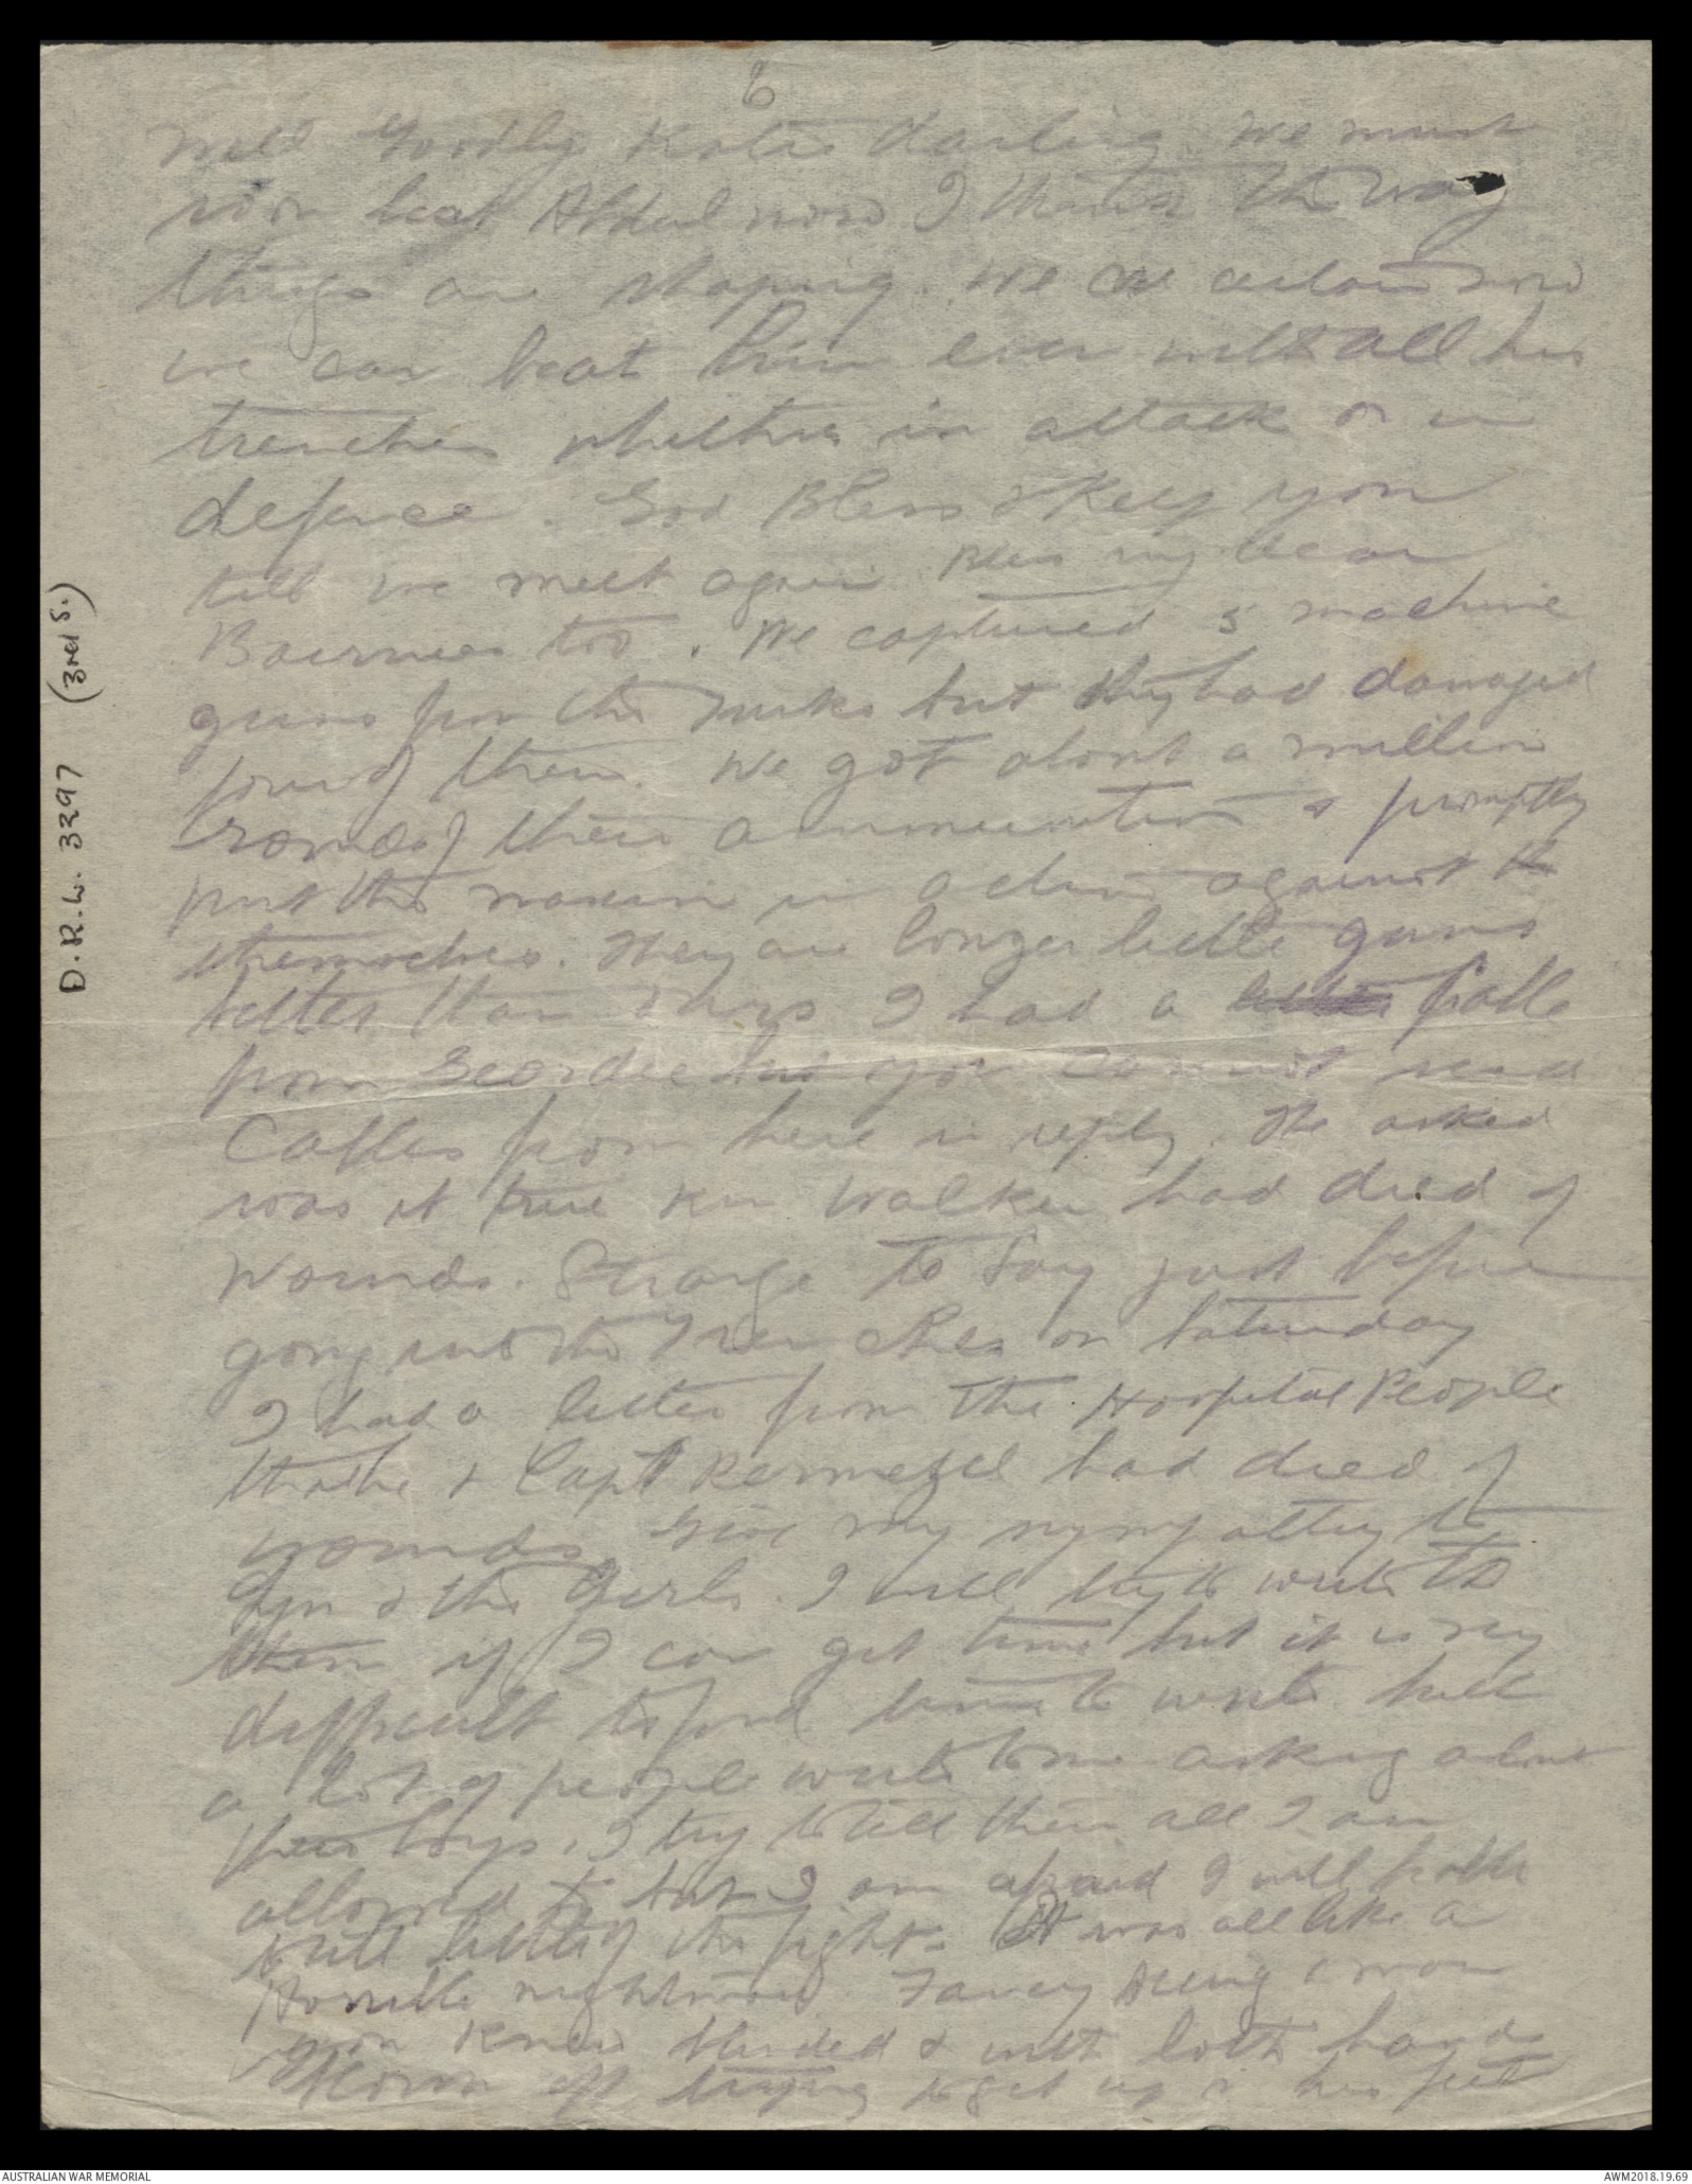 6
Well Goodby Katie darling. We must
soon beat Abdul now I think the way
things are shaping. We are certain now
we can beat him even with all his
trenches whether in attack or in
defence. God Bless & Keep you
till we meet again Bless my dear
Bairnies too. We captured 5 machine
guns from the Turks but they had damaged
four of them. We got about a million
rounds of their ammunition & promptly
put the maxim in action against the
themselves. They are longer little guns
better than ours I had a cable
from Geordie but you cannot send
Cables from here in reply. He asked
was it true Ken Walker had died of
Wounds. Strange to Say just before
going into the Trenches on Saturday
I had a letter from the Hospital People
that he & Capt Kermezel had died of
wounds. Give my sympathy to
Lyn & the Girls. I will try to write to
them if I can get time but it is very
difficult to find time to write but
a lot of people write to me asking about
their boys. I try to tell them all I am
allowed to but I am afraid I will
little of the fight. It was all like a
Horrible nightmare. Fancy seeing a man
you knew blinded & with both hands
blown off trying to get up on his feet
D.R.L. 3297 (3rd S.)
AUSTRALIAN WAR MEMORIAL
AWM2018.19.69